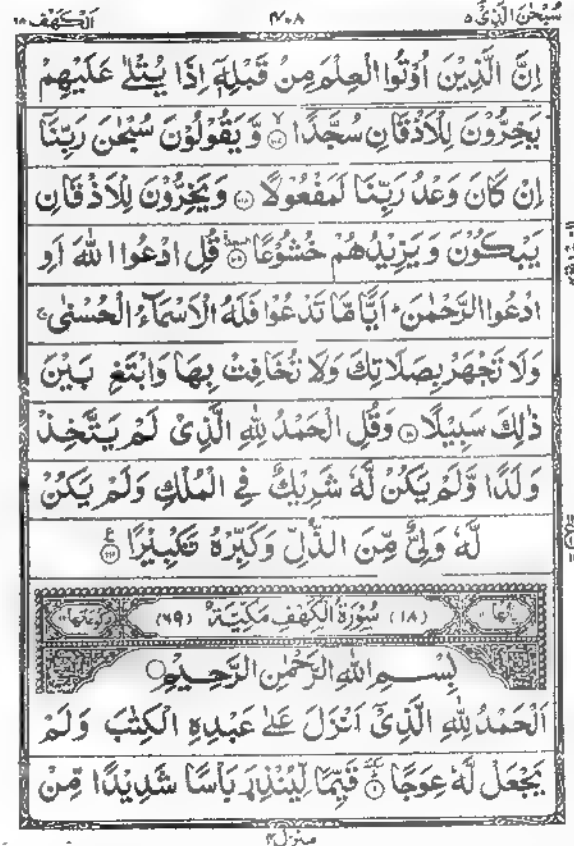 سُبۡحٰنَ الَّذِیۡۤ ١٥ ٤٠٨ اَلۡكَهۡف ١٨
اِنَّ الَّذِیۡنَ اُوۡتُوا الۡعِلۡمَ مِنۡ قَبۡلِهٖۤ اِذَا یُتۡلٰی عَلَیۡهِمۡ
یَخِرُّوۡنَ لِلۡاَذۡقَانِ سُجَّدًا ۙ﴿۱۰۷﴾ وَّیَقُوۡلُوۡنَ سُبۡحٰنَ رَبِّنَاۤ
اِنۡ كَانَ وَعۡدُ رَبِّنَا لَمَفۡعُوۡلًا ﴿۱۰۸﴾ وَیَخِرُّوۡنَ لِلۡاَذۡقَانِ
یَبۡكُوۡنَ وَیَزِیۡدُهُمۡ خُشُوۡعًا ﴿۱۰۹﴾ قُلِ ادۡعُوا اللّٰهَ اَوِ
ادۡعُوا الرَّحۡمٰنَ ؕ اَیًّا مَّا تَدۡعُوۡا فَلَهُ الۡاَسۡمَآءُ الۡحُسۡنٰی ۚ
وَلَا تَجۡهَرۡ بِصَلَاتِكَ وَلَا تُخَافِتۡ بِهَا وَابۡتَغِ بَیۡنَ
ذٰلِكَ سَبِیۡلًا ﴿۱۱۰﴾ وَقُلِ الۡحَمۡدُ لِلّٰهِ الَّذِیۡ لَمۡ یَتَّخِذۡ
وَلَدًا وَّلَمۡ یَكُنۡ لَّهٗ شَرِیۡكٌ فِی الۡمُلۡكِ وَلَمۡ یَكُنۡ
لَّهٗ وَلِیٌّ مِّنَ الذُّلِّ وَكَبِّرۡهُ تَكۡبِیۡرًا ﴿۱۱۱﴾ ع
(١٨) سُوۡرَةُ الۡكَهۡفِ مَكِّیَّةٌ (٦٩)
بِسۡمِ اللّٰهِ الرَّحۡمٰنِ الرَّحِیۡمِ
اَلۡحَمۡدُ لِلّٰهِ الَّذِیۡۤ اَنۡزَلَ عَلٰی عَبۡدِهِ الۡكِتٰبَ وَلَمۡ
یَجۡعَلۡ لَّهٗ عِوَجًا ﴿۱﴾ قَیِّمًا لِّیُنۡذِرَ بَاۡسًا شَدِیۡدًا مِّنۡ
منزل ٤